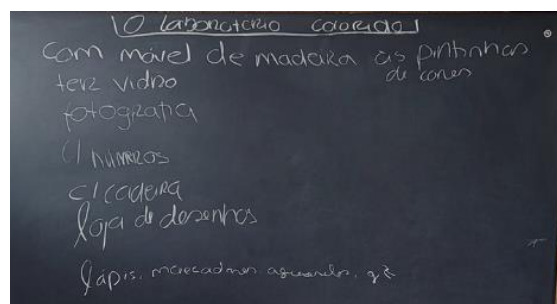 O laboratório colorido
com móvel de madeira às pintinhas
de cores
ter vidro
fotografia
c/ números
c/ cadeira
loja de desenhos
lápis, marcadores, aguarelas,